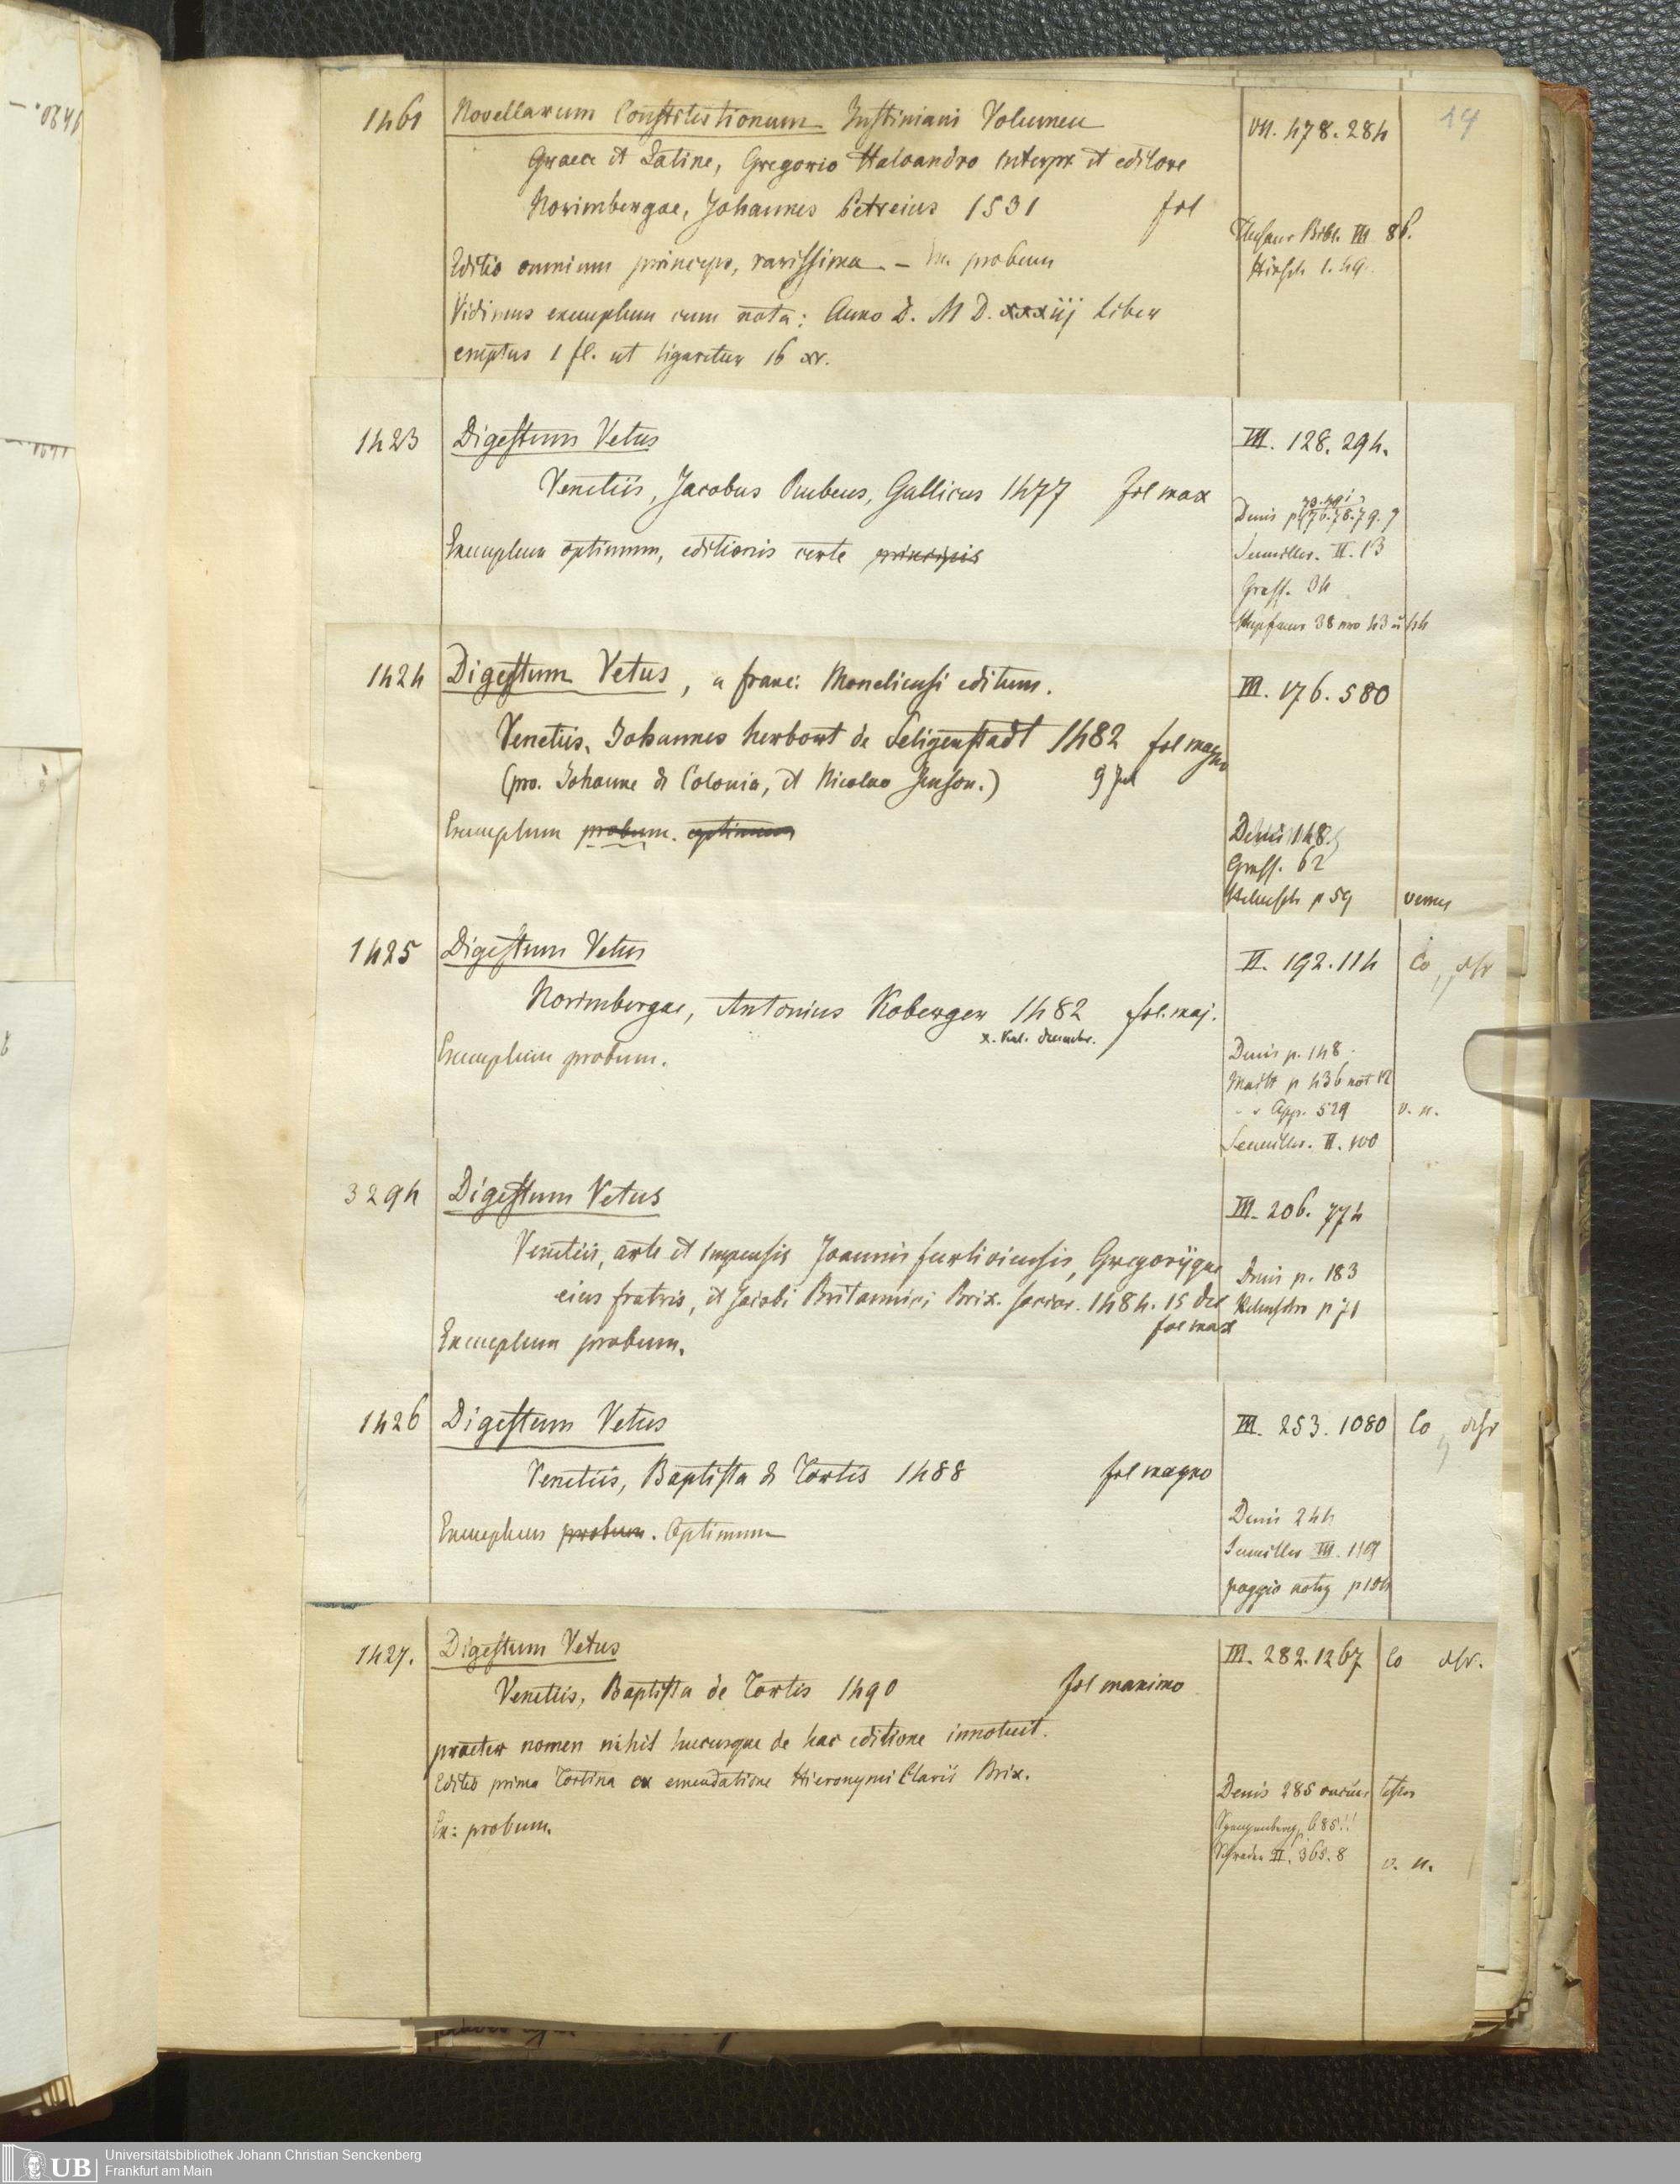 14
1461 Novellarum Constitutionum Justiniani Volumen VII. 478. 284
Graece et Latine, Gregorio Haloandro interpr et editore
Norimbergae, Johannes Petreius 1531 fol
Thesaur Bibl. III 86.
Hirsch I. 49.
Editio omnium princeps, rarissima - Ex. probum
Vidimus exemplum cum nota: Anno D. M D. xxxiij Liber
emptus 1 fl. ut ligaretur 16 xr.
1423 Digestum Vetus III. 128. 294.
Venetiis, Jacobus Rubeus, Gallicus 1477 fol max
Exemplum optimum, editionis certe principis
Denis p 76. 78. 79.
Seemiller. II. 13
Graff. 34
38 nro 43 u 44
1424 Digestum Vetus, a franc: Moneliensi editum. III. 176. 580
Venetiis, Johannes herbort de Seligenstadt 1482 fol magno
(pro. Johanne de Colonia, et Nicolao Jenson.) 9 Jul
Exemplum probum. optimum
Denis 148
Graff. 62
p 59
1425 Digestum Vetus II. 192. 114 Co, dsr
Norimbergae, Antonius Koberger 1482 fol. maj.
x. Kal. decembr.
Exemplum probum.
Denis p. 148
Maitt p 436 not 12
- - App. 529 v. n.
Seemiller. II. 100
3294 Digestum Vetus III. 206. 774
Venetiis, arte et impensis Joannis furliviensis, Gregorijque
eius fratris, et Jacobi Britannici Brix. socior. 1484. 15 Dec
fol max
Exemplum probum.
Denis p. 183
p 71
1426 Digestum Vetus III. 253. 1080 Co, dsr
Venetiis, Baptista de Tortis 1488 fol magno
Exemplum probum. Optimum
Denis 244
Seemiller III. 119
1427. Digestum Vetus III. 282. 1267 Co dsr.
Venetiis, Baptista de Tortis 1490 fol maximo
praeter nomen nihil hucusque de hac editione innotuit.
Editio prima Tortina ex emendatione Hieronymi Clarii Brix.
Ex: probum.
Denis 285
Spangenberg p. 685!!
Schrader II. 363. 8 v. n.
UB Universitätsbibliothek Johann Christian Senckenberg
Frankfurt am Main